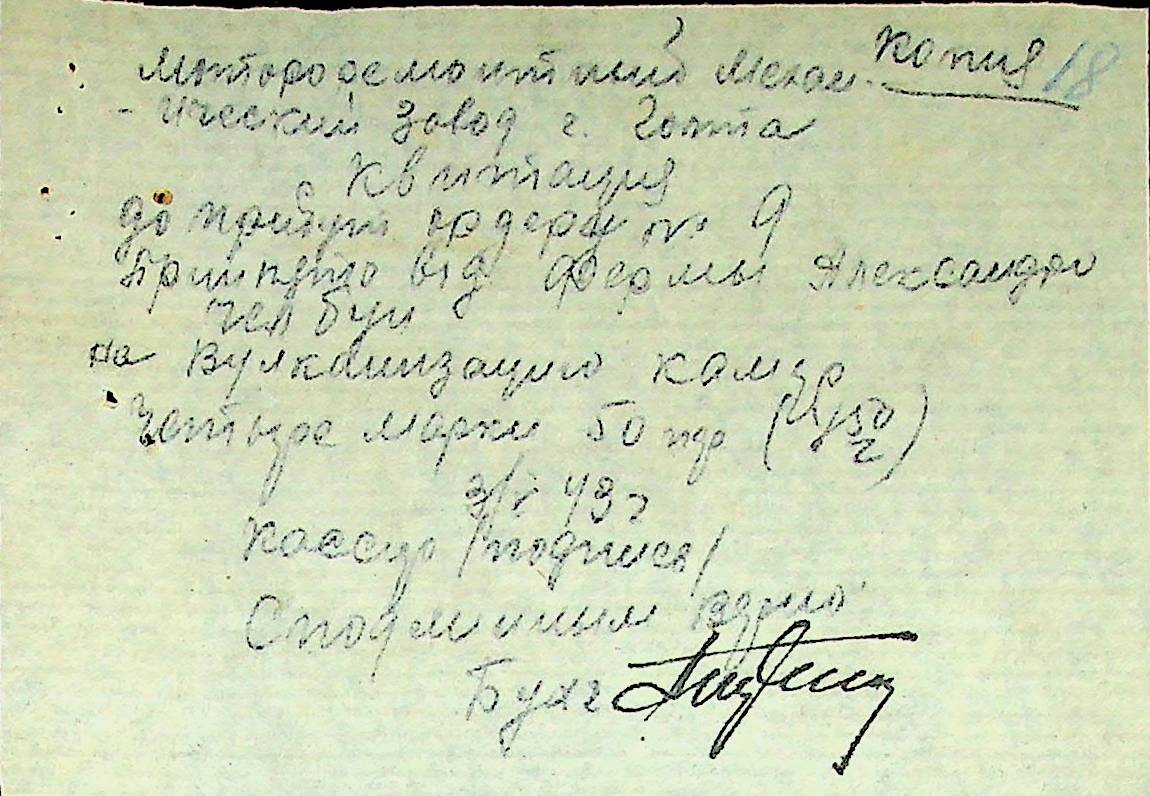 Копия 18
Моторороемонтный Механ-
-ический завод г. Голта
Квитация
до прибут ордеру № 9
Принято від фермы Александро
на Вулканизацию камер
Четыре марки 50 пф
3/V 43 г
Кассир /подпись/
С подлинным верно
Бухг